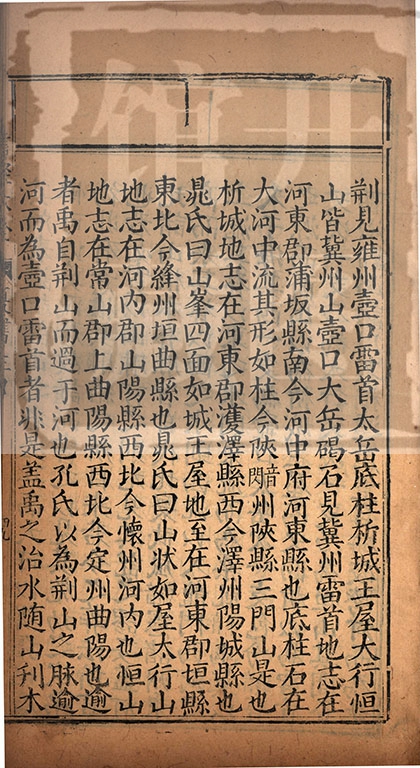 荆見雍州壺口雷首太岳底柱析城王屋大行恒
山皆冀州山壺口大岳碣石見冀州雷首地志在
河東郡蒲坂縣南今河中府河東縣也底柱石在
大河中流其形如柱今陜音閃州陜縣三門山是也
析城地志在河東郡濩澤縣西今澤州陽城縣也
晁氏曰山峯四面如城王屋地至在河東郡垣縣
東北今絳州垣曲縣也晁氏曰山狀如屋太行山
地志在河內郡山陽縣西北今懷州河內也恒山
地志在常山郡上曲陽縣西北今定州曲陽也逾
者禹自荆山而過于河也孔氏以為荆山之脉逾
河而為壺口雷首者非是盖禹之治水随山刋木